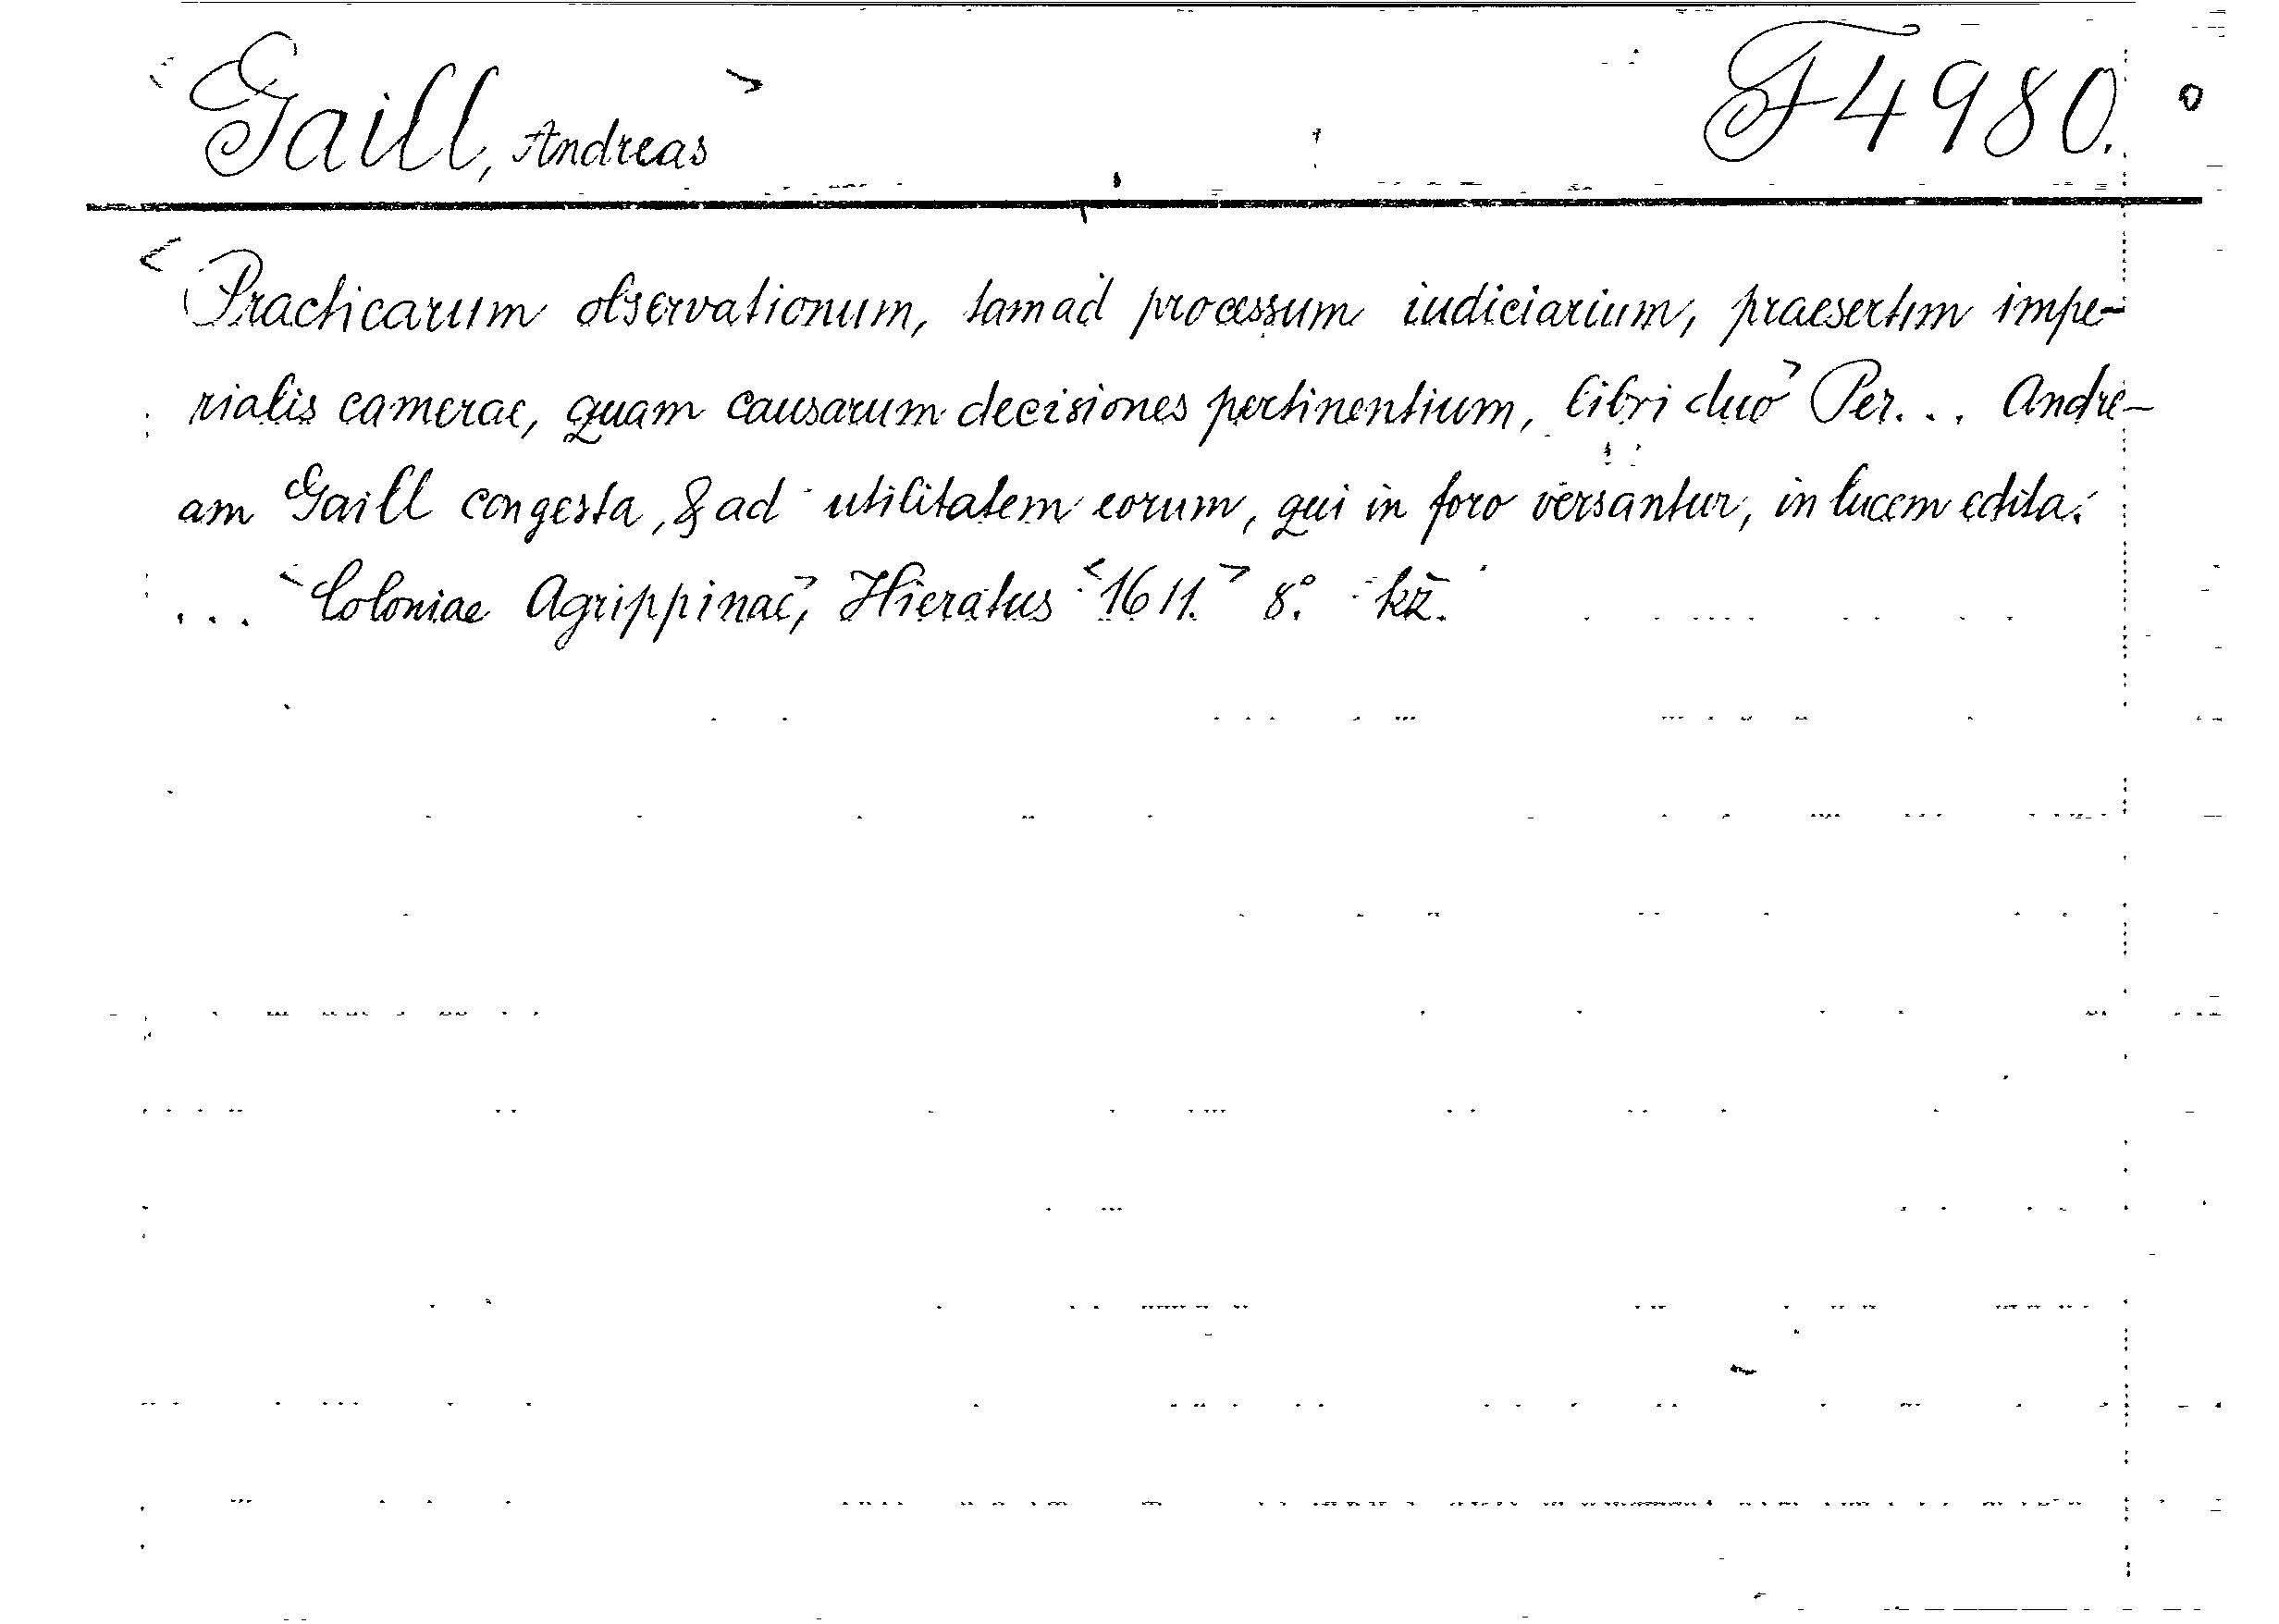 <Gaill, Andreas> F 4980.
<Practicarum observationum, tam ad processum iudiciarium, praesertim impe-
rialis camerae, quam causarum decisiones pertinentium, libri duo> Per... Andre-
am Gaill congesta, & ad utilitatem eorum, qui in foro versantur, in lucem edita.
... <Coloniae Agrippinae>, Hieratus <1611.> 8° kž.